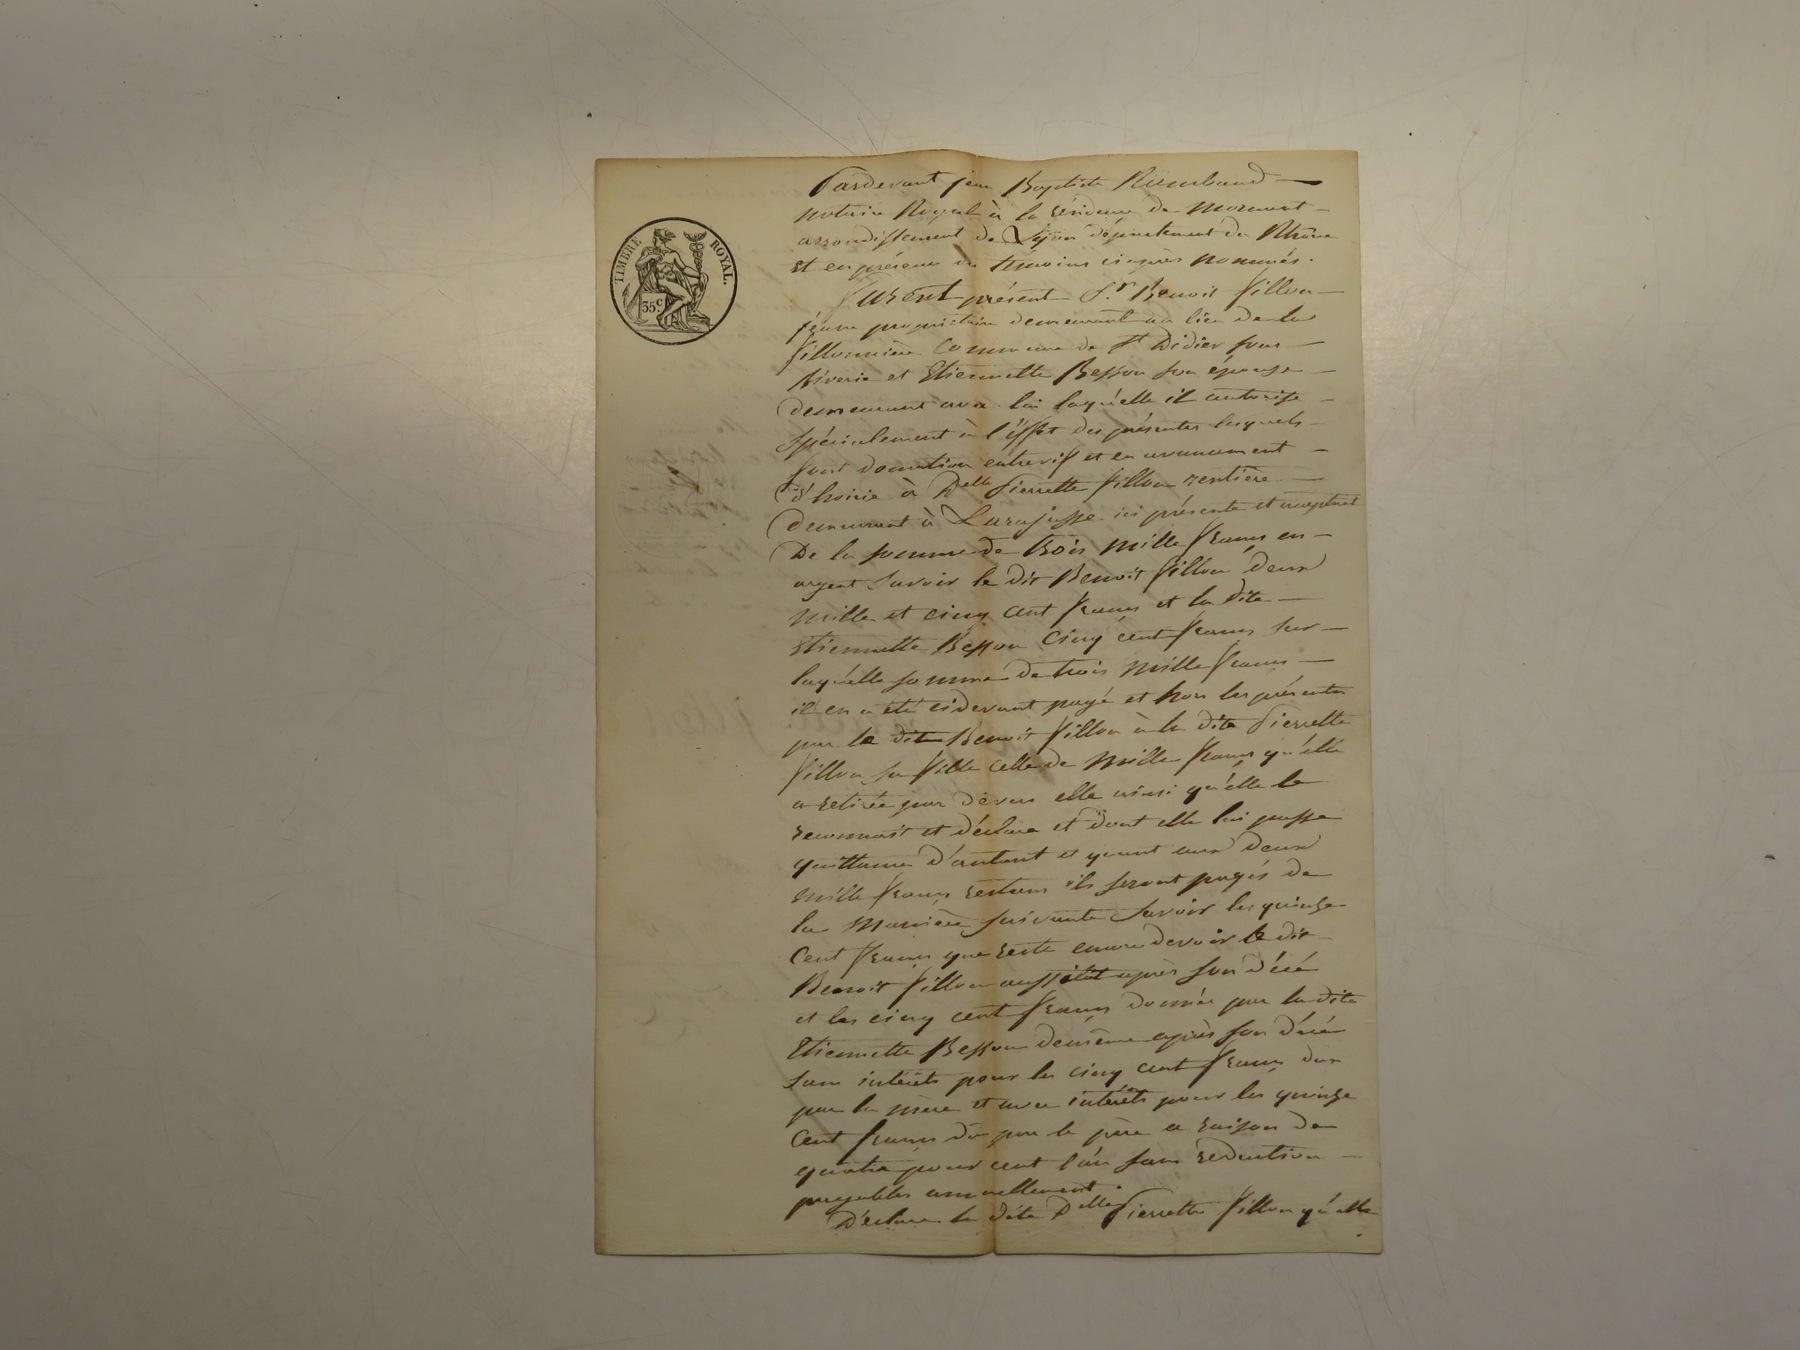 TIMBRE ROYAL.
35 c.
Pardevant jean Baptiste Rimbaud
notaire Royal à la résidence de Mornant
arrondissement de Lyon département du Rhône
et en présence des témoins ciaprès nommés.
Furent présent S.r Benoit fillon
propriétaire demeurant au lieu de la
fillonnière Commune de St Didier sous
Riverie et Etiennette Besson son épouse
demeurant avec lui laquelle il autorise
spécialement à l'éffet des présentes lesquels
font donation entrevif et en avancement
d'hoirie à Delle Pierrette fillon rentière
demeurant à Larajasse ici présente et acceptant
De la somme de trois mille francs en
argent savoir le dit Benoit fillon deux
mille et cinq cent francs et la dite
Etiennette Besson cinq cent francs sur
laquelle somme de trois mille francs
il en a été cidevant payé et hors les présentes
par le dit Benoit fillon à la dite Pierrette
fillon sa fille celle de mille francs qu'elle
a retirée par dévers elle ainsi qu'elle le
reconnait et déclare et dont elle lui passe
quittance d'autant et quant aux deux
mille francs restans ils seront payés de
la manière suivante savoir les quinze
cent francs que reste encore devoir le dit
Benoit fillon aussitôt après son décé
et les cinq cent francs donnée par la dite
Etiennette Besson deméme après son décé
sans intérêts pour les cinq cent francs dus
par la mère et avec intérêts pour les quinze
cent francs dû par le père a raison de
quatre pour cent l'an sans réduction
payables annuellement.
Déclare la dite Delle Pierrette fillon qu'elle